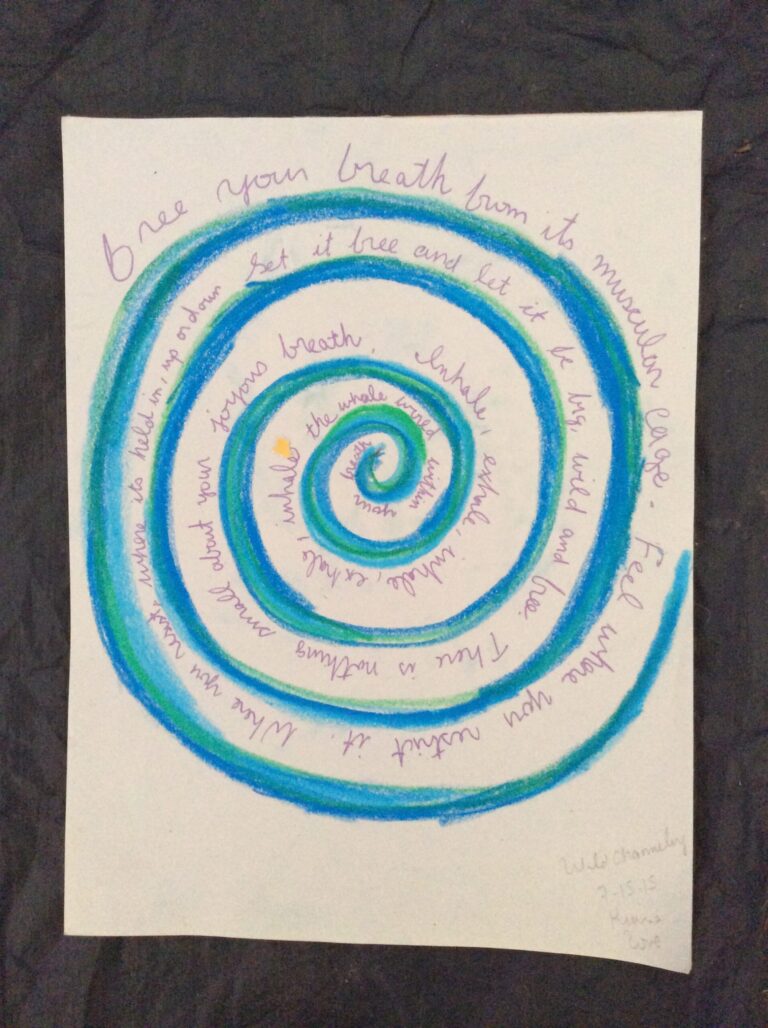 Free your breath from its muscular cage. Feel where you restrict it. Where you resist, where its held in, up or down Set it free and let it be big, wild and free. There is nothing small about your joyous breath. Inhale, exhale, inhale, exhale, inhale the whole wired within your breath
Wild Channeling
15.15